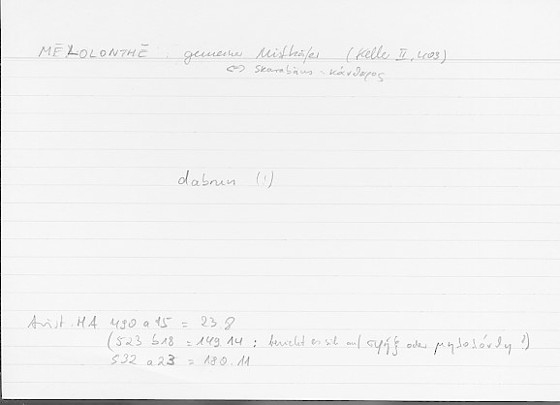 MĒLOLONTHĒ gemeiner Mistkäfer (Keller II, 409)
<-> Skarabäus - κάνθαρος
dabrun (!)
Arist. HA 490 a 15 = 23.8
(523 b 18 = 149.14 : bezieht es sich auf σφήξ oder μηλολόνθη !)
532 a 23 = 180.11